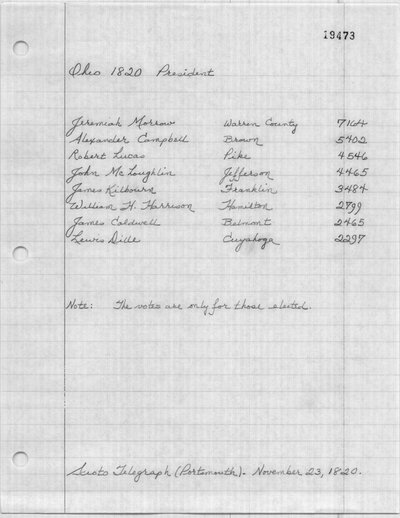 19473
Ohio 1820 President
Jeremiah Morrow Warren County 7164
Alexander Campbell Brown 5402
Robert Lucas Pike 4546
John McLoughlin Jefferson 4465
James Kilbourn Franklin 3484
William H. Harrison Hamilton 2799
James Caldwell Belmont 2465
Lewis Dille Cuyahoga 2297
Note: The votes are only for those elected.
Scioto Telegraph (Portsmouth). November 23, 1820.